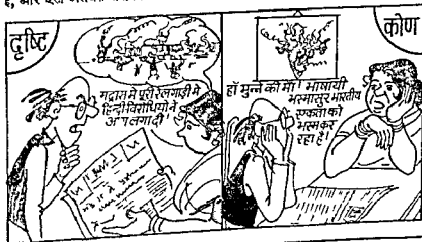 दृष्टि
मद्रास में पूरी रेलगाड़ी में
हिन्दी विरोधियों ने
आग लगा दी
कोण
हाँ मुन्ने की माँ! भाषायी
भस्मासुर भारतीय
एकता को
भस्म कर
रहा है!